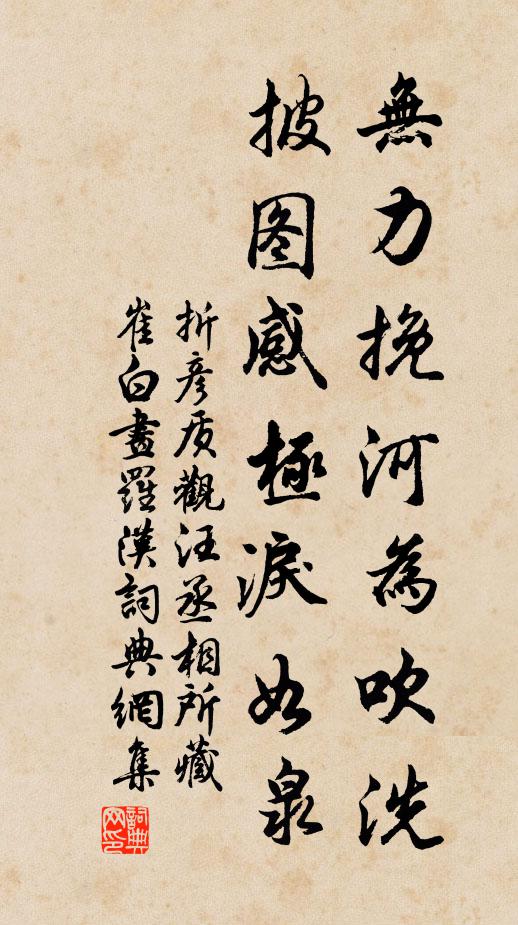 無力挽河為吹洗
披图感極淚如泉
折彦质觀汪丞相所藏
崔白畫羅漢詞典網集
詞典网印